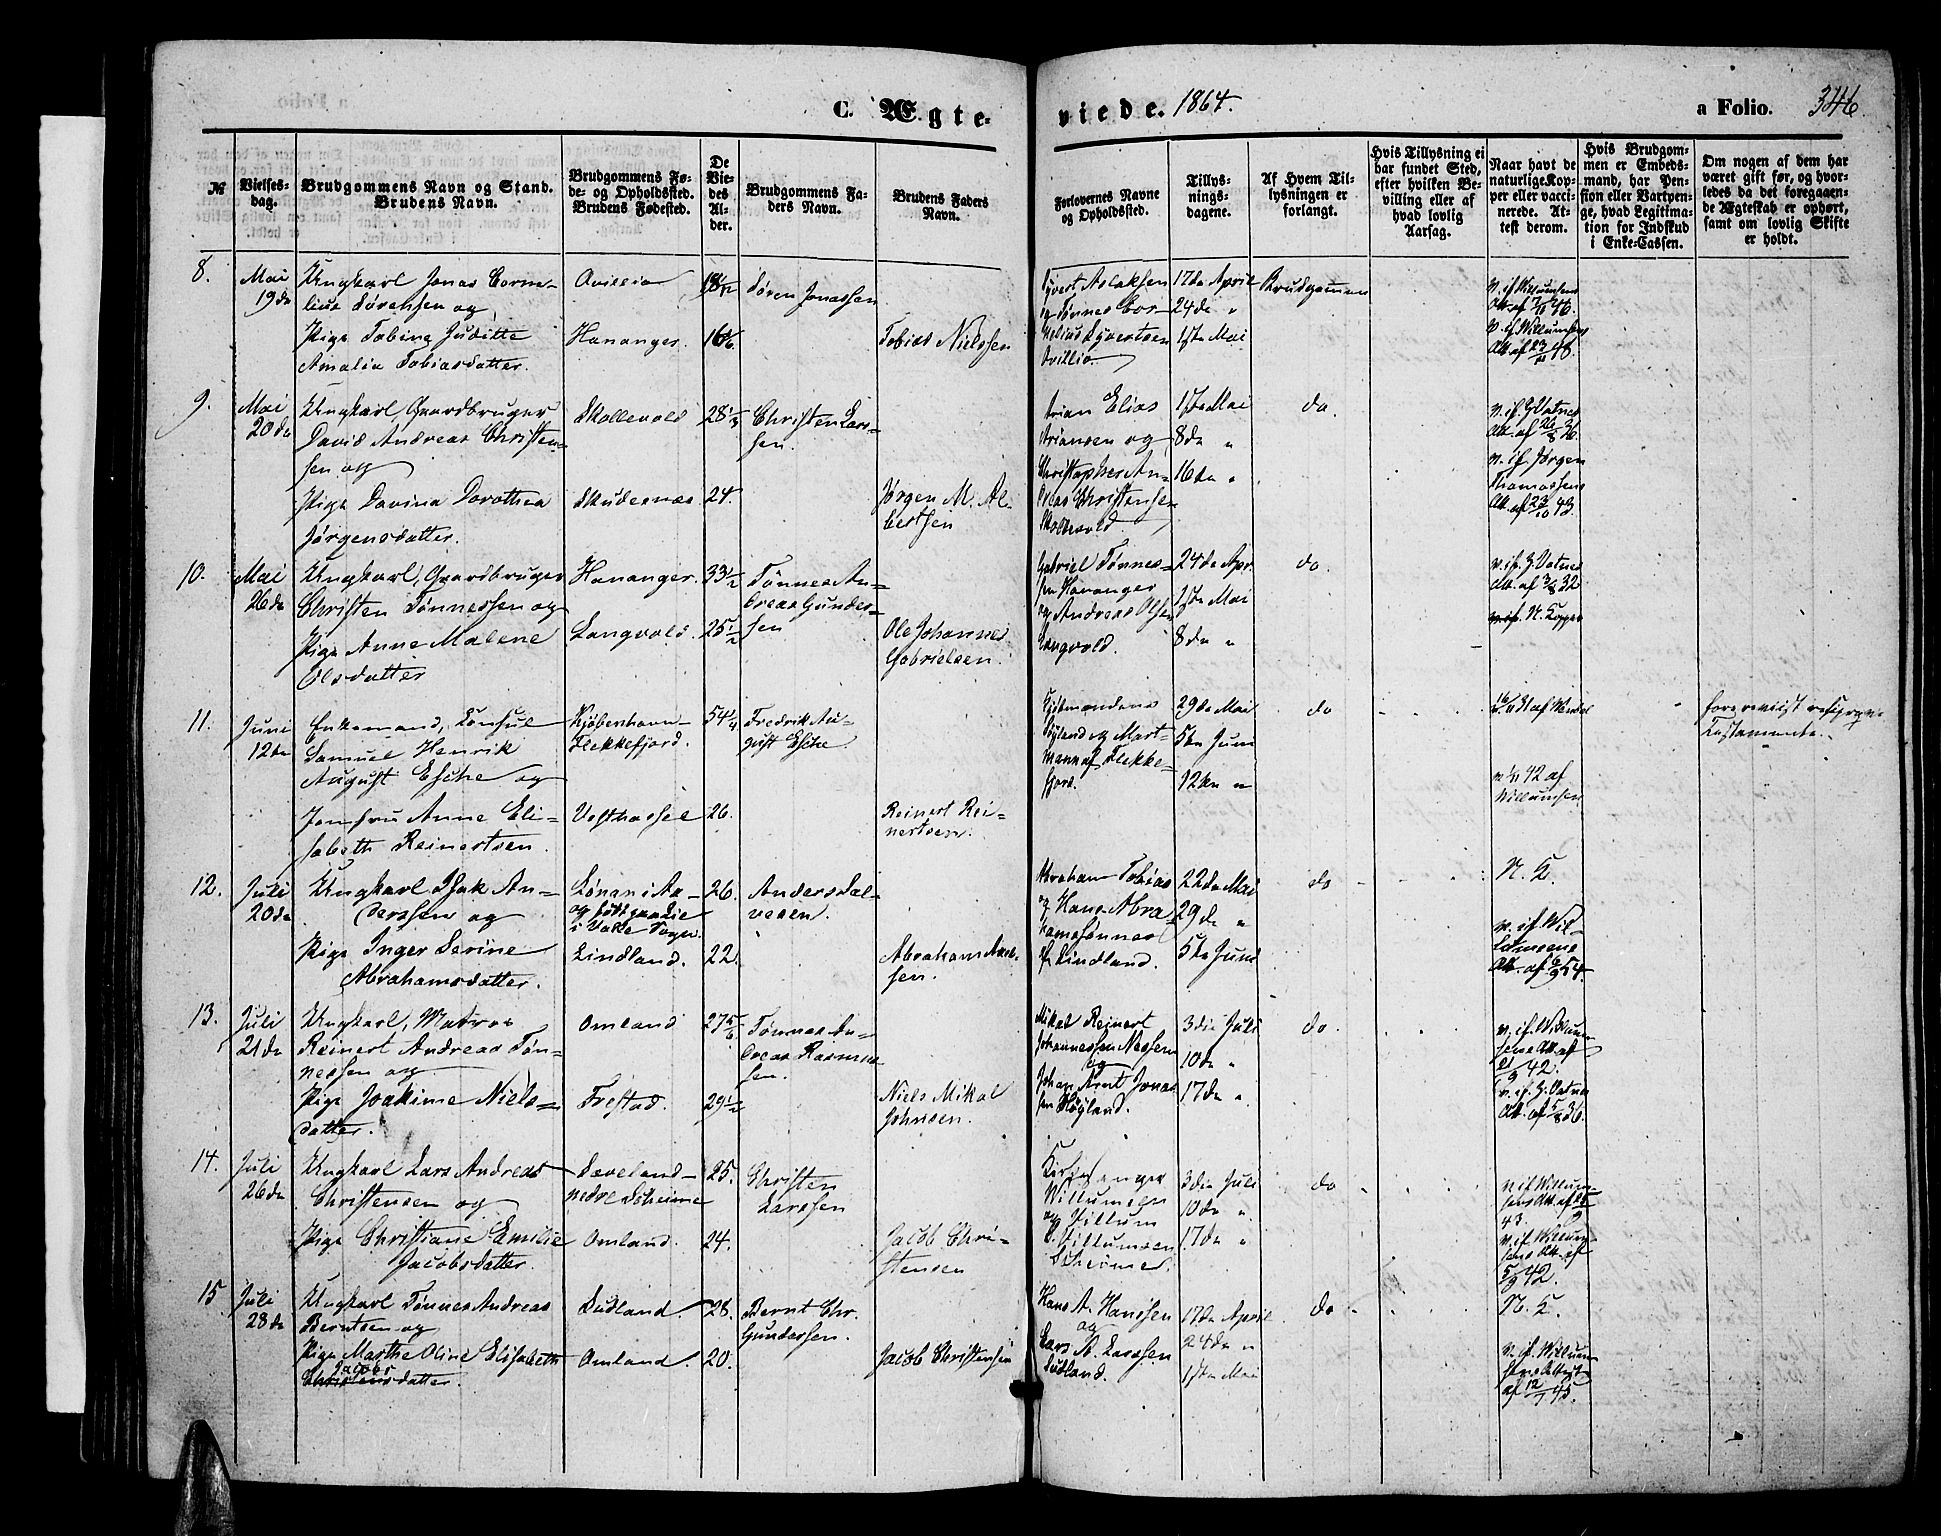 C. Ægte-
viede. 1864.
a Folio. 346.
№
Vielses-
dag.
Brudgommens Navn og Stand.
Brudens Navn.
Brudgommens Fø-
de- og Opholdssted.
Brudens Fødested.
De
Vie-
des
Al-
der.
Brudgommens Fa-
ders Navn.
Brudens Faders
Navn.
Forlovernes Navne
og Opholdssted.
Tillys-
nings-
dagene.
Af Hvem Til-
lysningen er
forlangt.
Hvis Tillysning ei
har fundet Sted,
efter hvilken Be-
villing eller af
hvad lovlig
Aarsag.
Naar havt de
naturlige Kop-
per eller vacci-
nerede. At-
test derom.
Hvis Brudgom-
men er Embeds-
mand, har Pen-
sion eller Vartpen-
ge, hvad Legitima-
tion for Indskud
i Enke-Cassen.
Om nogen af dem har
været gift før, og hvor-
ledes da det foregaaen-
de Ægteskab er ophørt,
samt om lovlig Skifte
er holdt.
8.
Mai
19de
Ungkarl Jonas Corne-
lius Sørensen og
Pige Tobine Juditte
Amalia Tobiasdatter.
Hananger.
Søren Jonassen
Tobias Nielssen
17de April
24de "
1ste Mai
Brudgommen
9.
Mai
20de
Ungkarl, Gaardbruger
David Andreas Christen-
sen og
Pige Davina Dorothea
Jørgensdatter.
Skollevold
Skudernes
28 1/3
24.
Christen Lars-
sen.
Jørgen M. Al-
bertsen
Arian Elias
Ariansen og
Christopher An-
dreas Christensen
Skollevold.
1ste Mai
8de "
16de "
do.
v. if. G. Vatnes
Att. af 26/8 36
v. if. Jørgen
Thomassens
Att. af 23/10 43.
10.
Mai
26de
Ungkarl, Gaardbruger
Christen Tønnessen og
Pige Anne Malene
Olsdatter
Hananger.
Langvold.
33 1/2
25 1/2
Tønnes An-
dreas Gunder-
sen
Ole Johannes
Gabrielsen.
Gabriel Tønnes-
sen Hananger
og Andreas Olsen
Langvold.
24de Apr.
1ste Mai
8de "
do.
v. if. G. Vatnes
Att. af 3/8 32
v. if. N. Kopper
11.
Juni
12te
Enkemand, Consul
Samuel Henrik
August Esche og
Jomfru Anne Eli-
sabeth Reinertsen.
Kjøbenhavn-
Flekkefjord.
Vesthassel
54 1/4
26.
Fredrik Au-
gust Esche.
Reinert Rei-
nertsen.
Kjøbmændene
og Mart-
mann af Flekke-
fjord.
29de Mai
5te Juni
12te "
do
42 af
Willumsen
Testamente.
12.
Juli
20de
Ungkarl Isak An-
derssen og
Pige Inger Serine
Abrahamsdatter.
Lindland.
26.
22.
Anders Sal-
vesen.
Abraham
sen.
Abraham Tobias
og Hans Abra-
hamssønner
af Lindland.
22de Mai
29de "
5te Juni
do
N. K.
v. if. Wil-
lumsens
Att. af 6/9 54.
13.
Juli
21de
Ungkarl, Matros
Reinert Andreas Tøn-
nessen og
Pige Joakime Niels-
datter.
Omland
Frestad.
27 5/6
29 1/2
Tønnes An-
dreas Rasmus-
sen.
Niels Mikal
Johnsen.
Mikal Reinert
Johannessen
og
Johan Arnt Jonas-
sen Høyland.
3die Juli
10de "
17de "
do
v. if. Willum-
sens Att. af
21/9 42.
v. if. G. Vatnes
Att. af 5/8 36.
14.
Juli
26de
Ungkarl Lars Andreas
Christensen og
Pige Christiane Emilie
Jacobsdatter.
Omland.
25.
24.
Christen
Larssen
Jacob Chri-
stensen
Kirkesanger
Willumsen
og Villum
Villumsen
3die Juli
10de "
17de "
do
v. if. Willum-
sens Att. af
43.
v. if. Willum-
sens Att. af
5/9 42.
15
Juli
28de
Ungkarl Tønnes Andreas
Berntsen og
Pige Marthe Oline Elisabeth
Jacobs
Christensdatter.
Sudland
Omland.
28.
20.
Bernt Chr.
Gundersen.
Jacob Christensen
Hans A. Hanssen
og
Lars A. Larssen
Sudland.
17de April
24de "
1ste Mai
do
N. K.
v. if. Willum-
sens Attest
af 12/7 45.